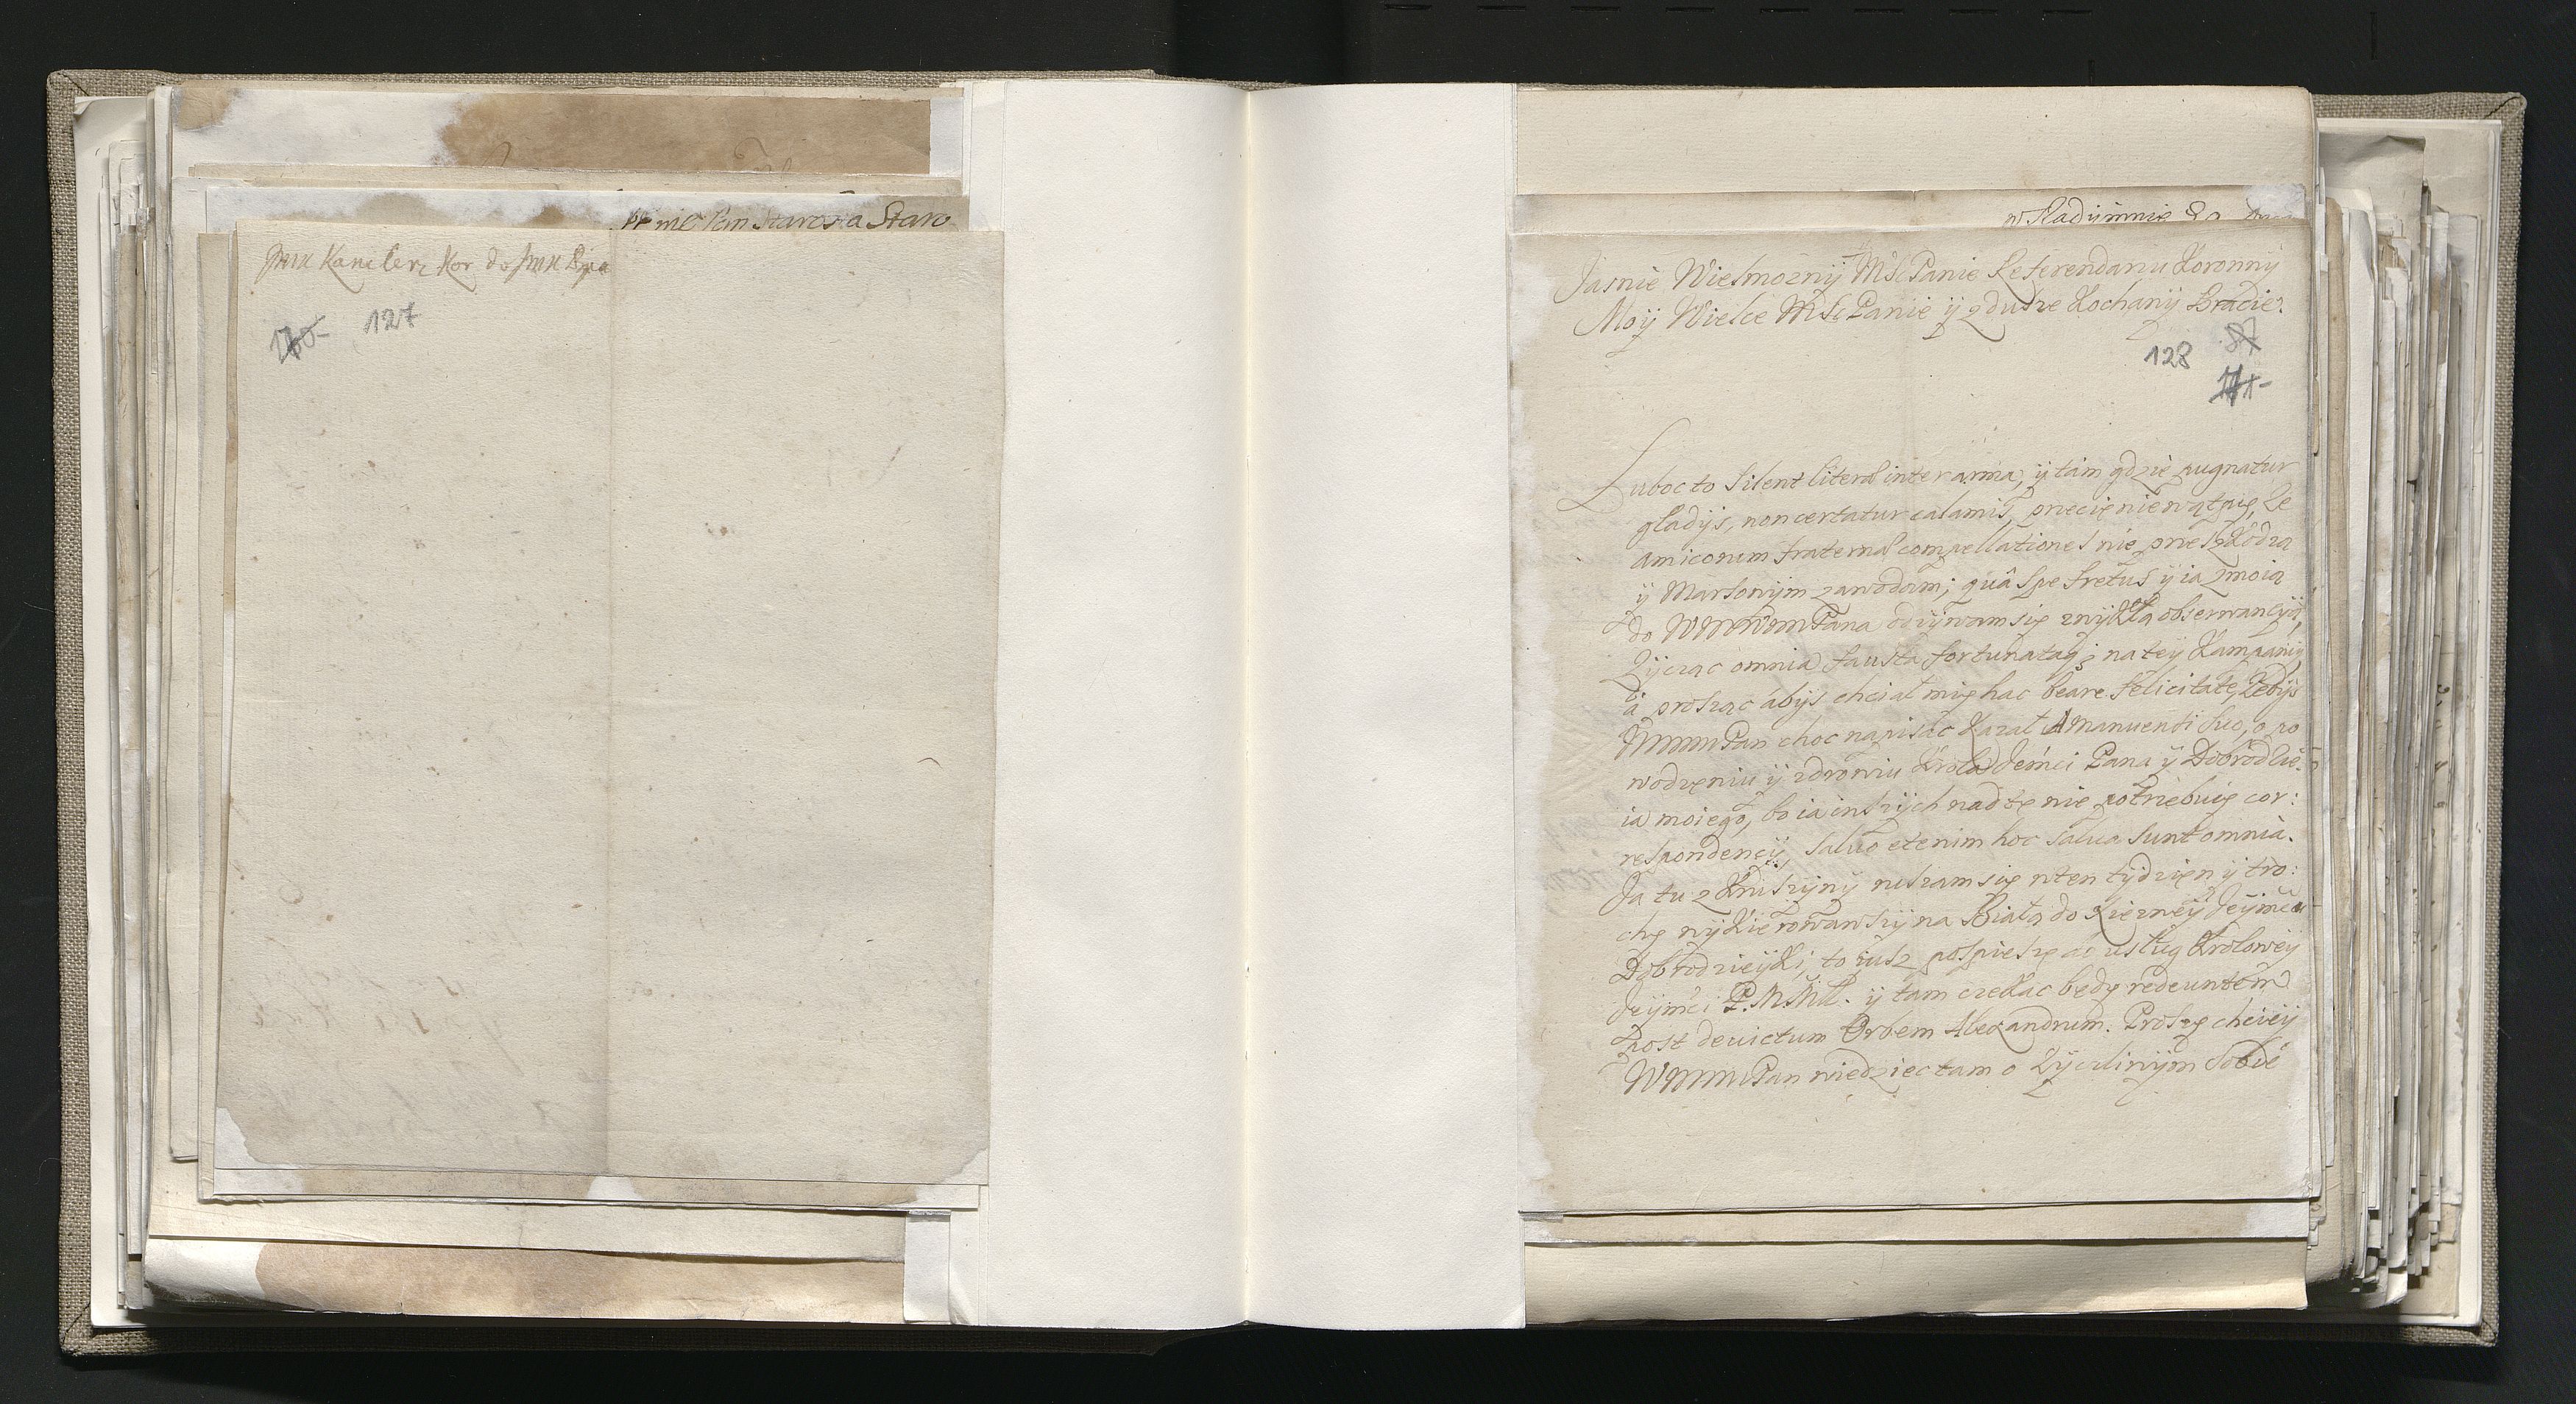 JMX Kanclerz Kor do JMX Bpa
127
Jasnie Wielmoznÿ Msc Panie Referendarzu Koronnÿ
Moÿ Wielce Msc Panie ÿ z dusze Kochanÿ Bracie.
128
87
Luboc to silent literæ inter arma, ÿ tam gdzie pugnatur
gladijs, non certatur calamis, przecię nie wątpię, że
amicorum fraternæ compellationes nie przeszkodzą
ÿ Marsowÿm zawodom; quâ spe fretus ÿ ia z moią
do WMMMPana odzÿwam się zwÿkłą obserwancÿą,
Zÿcząc omnia fausta fortunataq; na teÿ Kampaniÿ,
a prosząc abÿs chciał mię hac beare felicitate, zebÿs
WMMMPan choc napisac kazał Amanuensi suo, o po
wodzeniu ÿ zdrowiu Krola Jemci Pana ÿ Dobrodzie:
ia moiego, bo ia inszÿch nad tę nie potrzebuię cor:
respondencÿ, salvo etenim hoc salua sunt omnia.
Ja tu z Krusznÿ ruszam się w ten tÿdzien ÿ tro:
chę wÿkierowawszÿ na Białą do Xiezneÿ Jeÿmci
Dobrodzieÿki, to iusz pospieszę do usług Kroloweÿ
Jeÿmci P. M. M. ÿ tam czekac będę redeuntem
post deuictum Orbem Alexandrum. Proszę chcieÿ
WMMMPan wiedziec tam o Zÿczliwÿm sobie